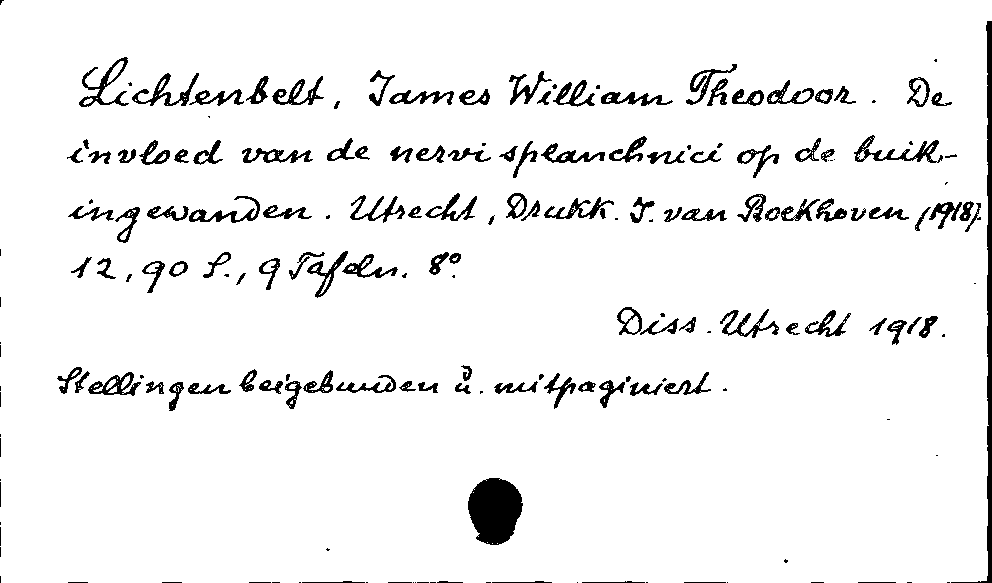 Lichtenbelt, James William Theodoor. De
invloed van de nervi splanchnici op de buik-
ingewanden. Utrecht, Drukk. J. van Boekhoven (1918).
12, 90 S., 9 Tafeln. 8°.
Diss. Utrecht 1918.
Stellingen beigebunden u. mitpaginiert.